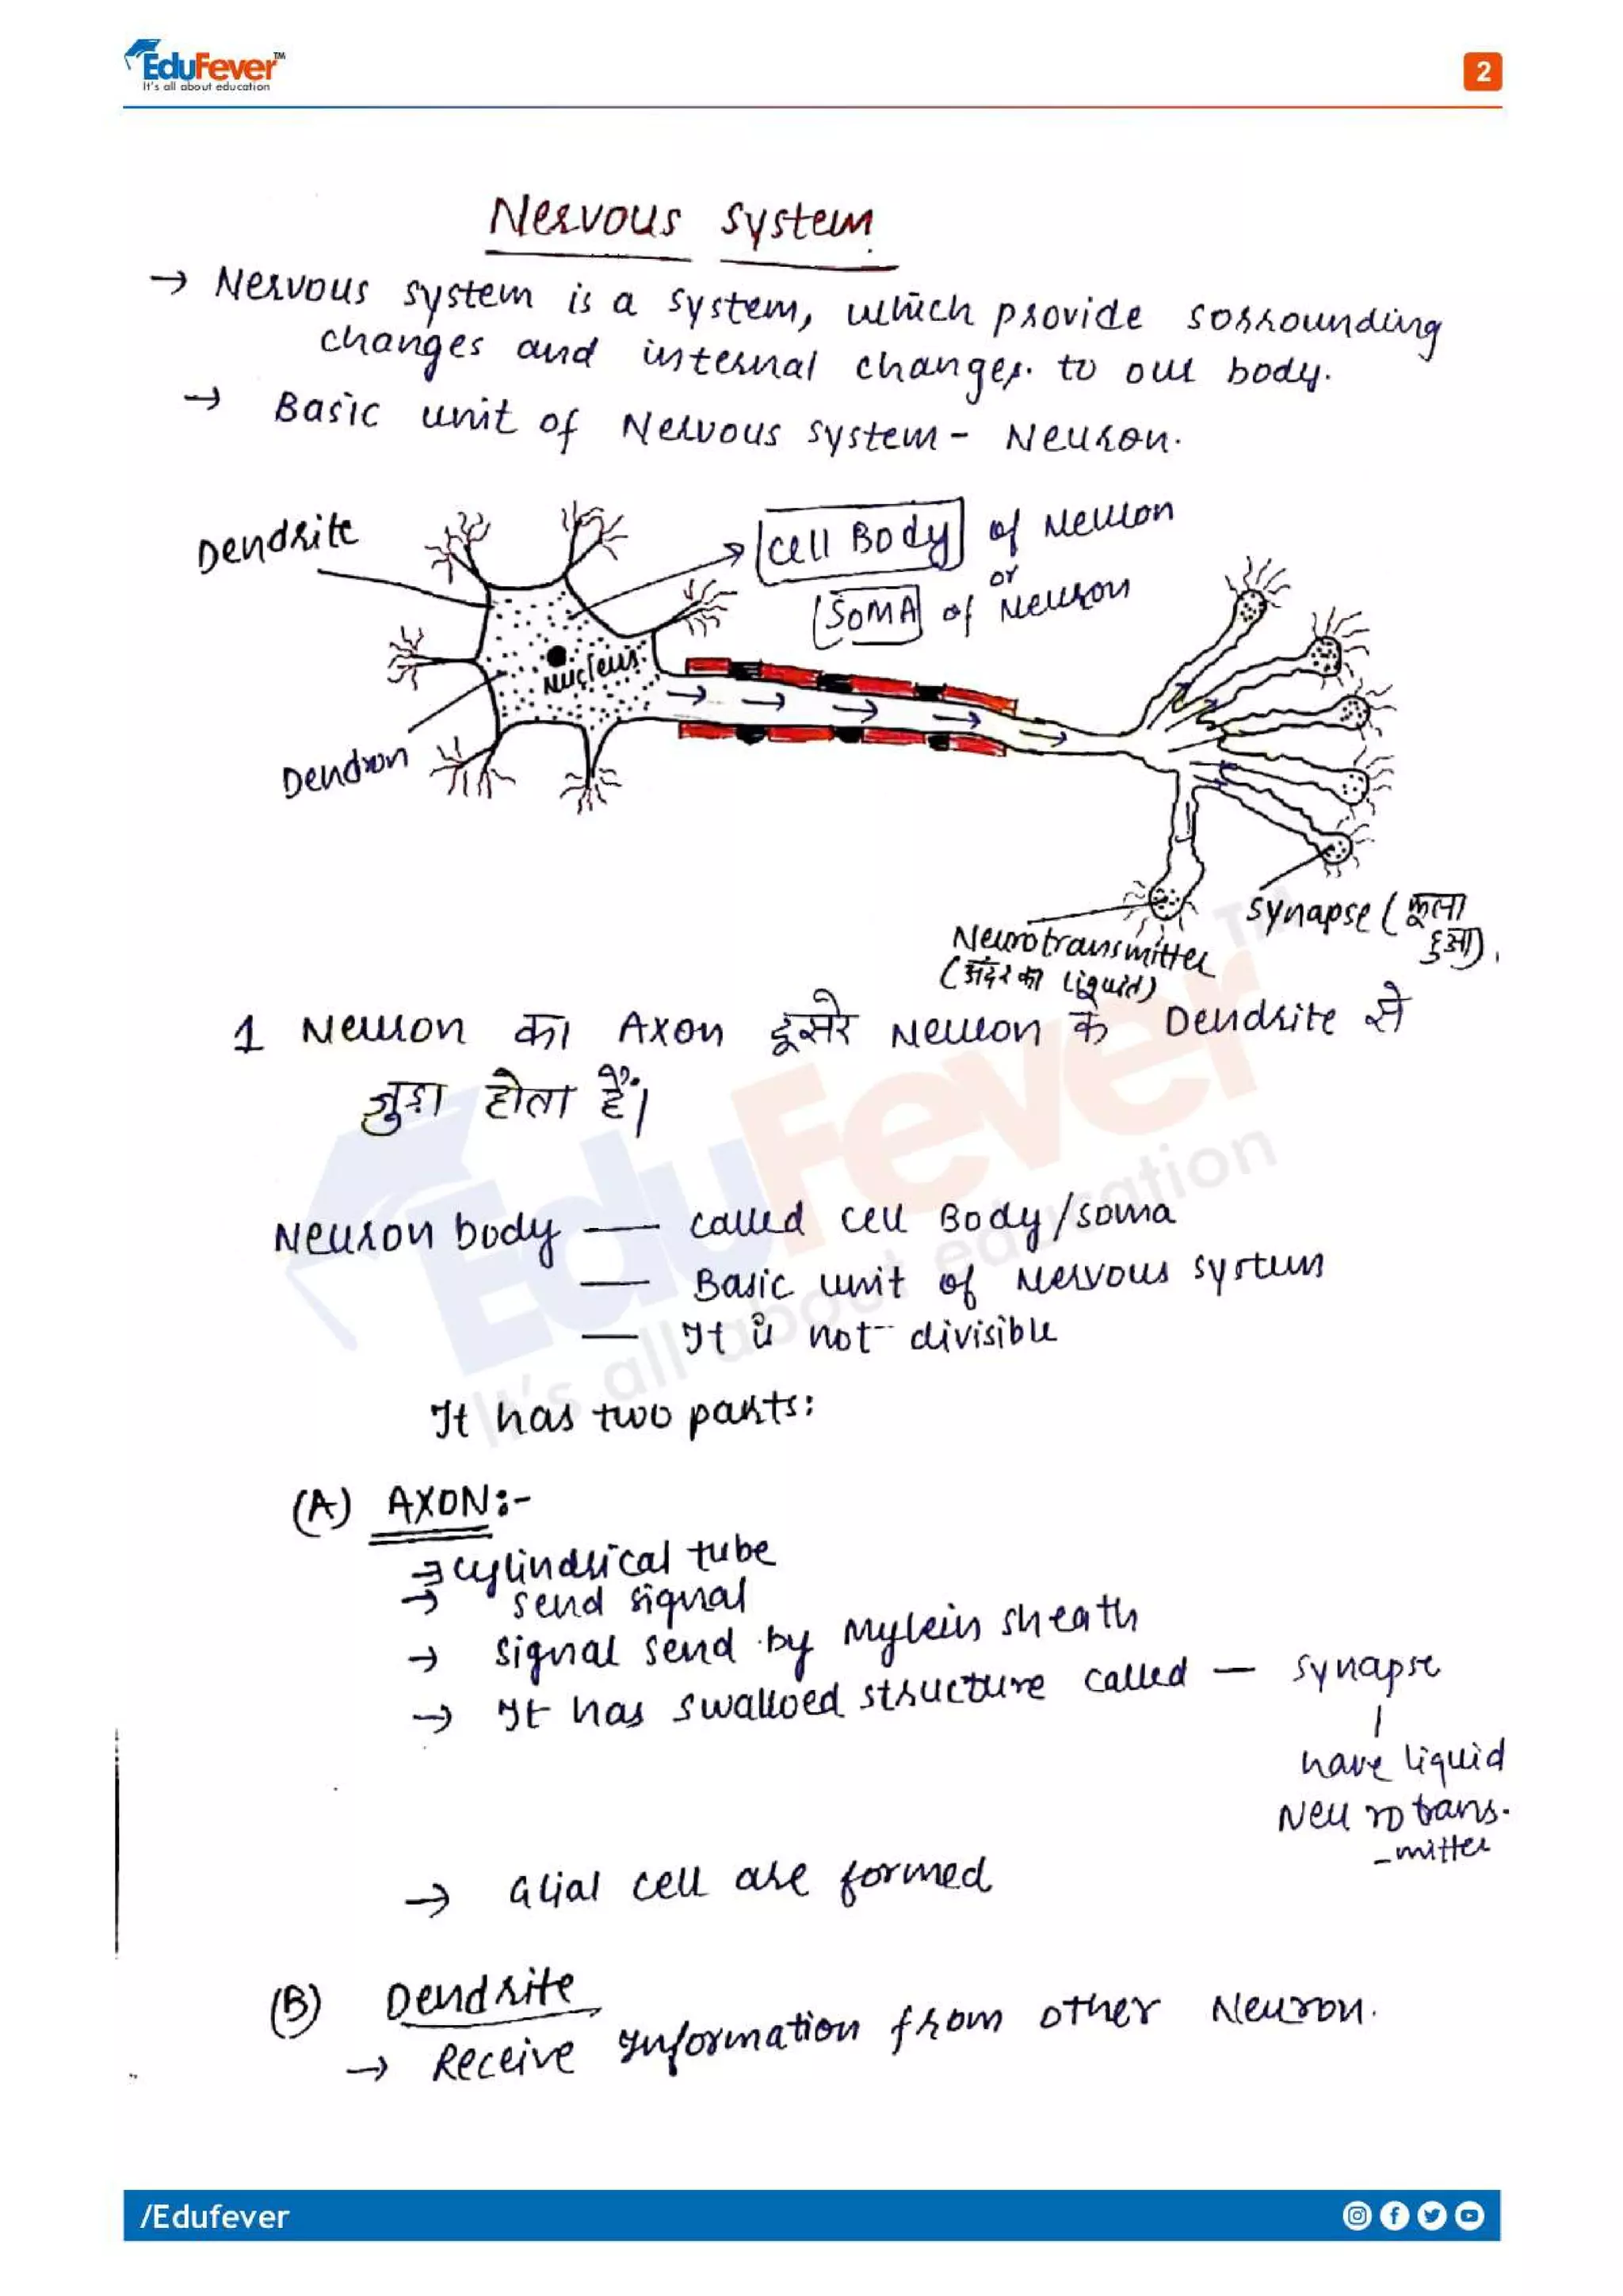 EduFever™
It's all about education
2
Nervous System
→ Nervous system is a system, which provide sorrounding
changes and internal changes. to our body.
→ Basic unit of Nervous system - Neuron.
Dendrite
Cell Body of Neuron
or
SOMA of Neuron
Nucleus
Dendron
Synapse (फूला
हुआ).
Neurotransmitter
(अंदर का liquid)
1 Neuron का Axon दूसरे Neuron के Dendrite से
जुड़ा होता हैं।
Neuron body — called cell Body/soma
— Basic unit of nervous system
— It is not divisible
It has two parts:
(A) AXON:-
→ cylindrical tube
→ send signal
→ signal send by Mylein sheath
→ It has swalloed structure called — synapse
have liquid
Neurotrans-
-mitter
→ Glial cell are formed
(B) Dendrite
→ Receive Information from other Neuron.
EduFever™
It's all about education
/Edufever